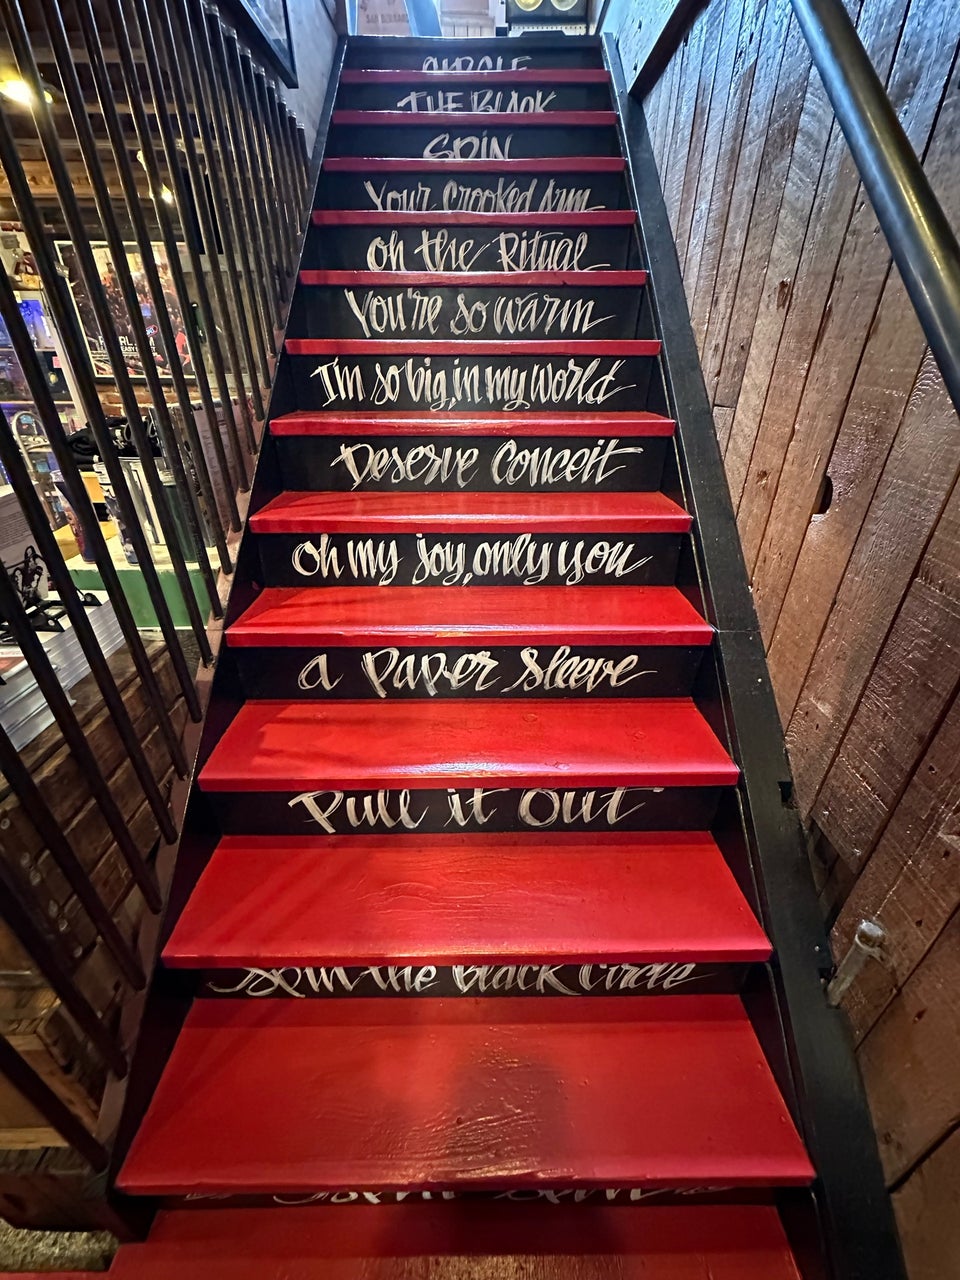 CIRCLE
THE BLACK
SPIN
Your Crooked Arm
oh the Ritual
You're so warm
I'm so big, in my world
Deserve Conceit
oh my joy, only you
a Paper Sleeve
Pull it Out
Spin the Black Circle
Spin Spin